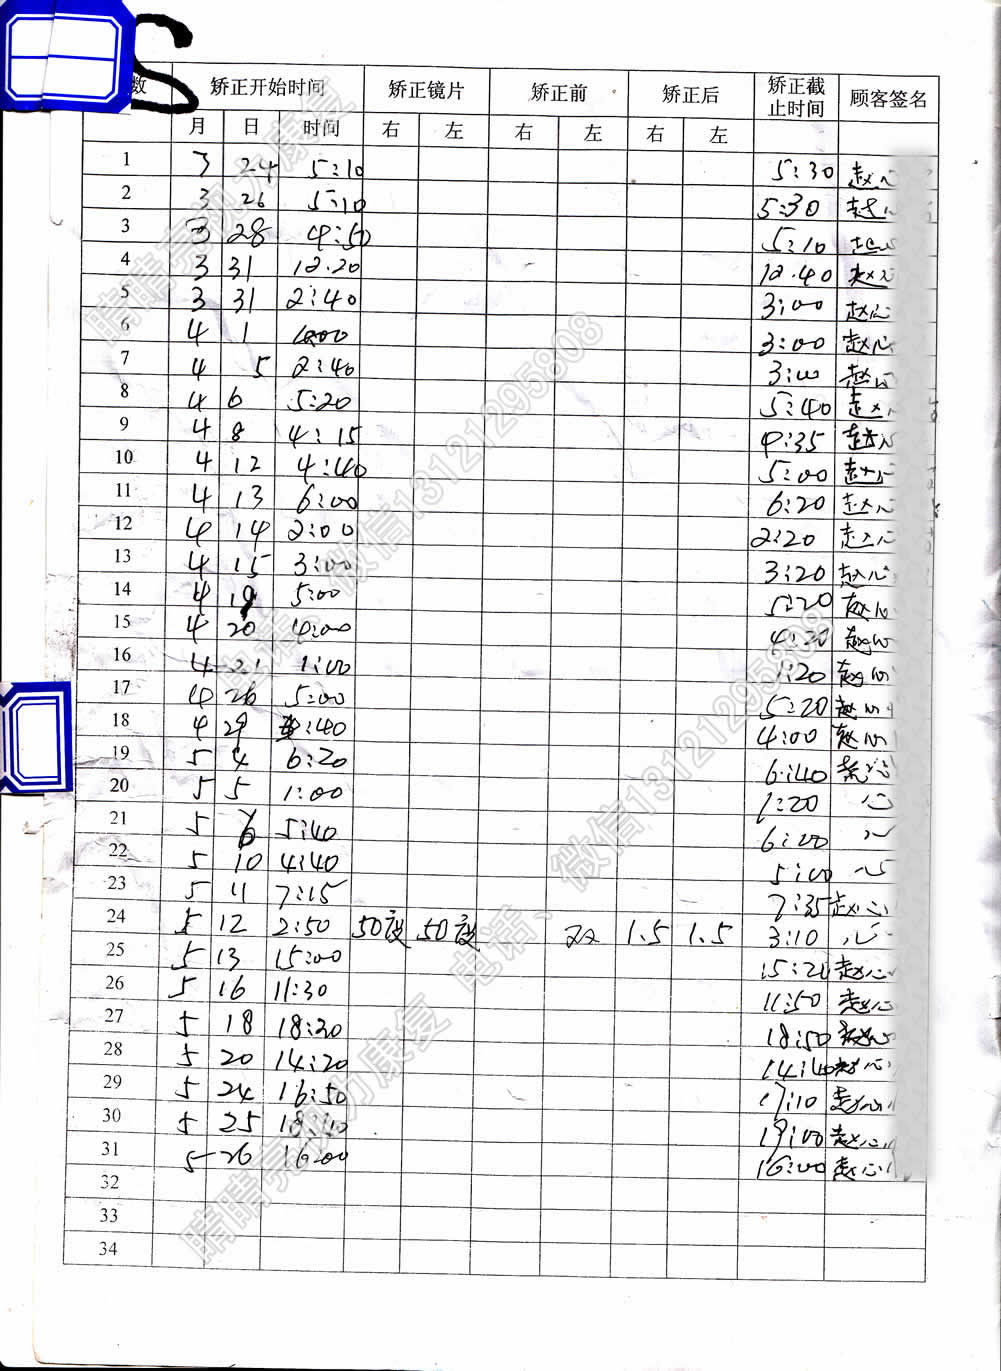 数 矫正开始时间 矫正镜片 矫正前 矫正后 矫正截止时间 顾客签名
月 日 时间 右 左 右 左 右 左
1 3 24 5:10 5:30 赵心
2 3 26 5:10 5:30 赵心
3 3 28 4:50 5:10 赵心
4 3 31 12.20 12.40 赵心
5 3 31 2:40 3:00 赵心
6 4 1 3:00 赵心
7 4 5 2:40 3:00 赵心
8 4 6 5:20 5:40 赵心
9 4 8 4:15 4:35 赵心
10 4 12 4:40 5:00 赵心
11 4 13 6:00 6:20 赵心
12 4 14 2:00 2:20 赵心
13 4 15 3:00 3:20 赵心
14 4 19 5:00 5:20 赵心
15 4 20 4:00 4:20 赵心
16 4 21 1:00 1:20 赵心
17 4 26 5:00 5:20 赵心
18 4 29 :40 4:00 赵心
19 5 4 6:20 6:40 赵心
20 5 5 1:00 1:20 心
21 5 6 5:40 6:00 心
22 5 10 4:40 5:00 心
23 5 11 7:15 7:35 赵心
24 5 12 2:50 50度 50度 双 1.5 1.5 3:10 心
25 5 13 15:00 15:20 赵心
26 5 16 11:30 11:50 赵心
27 5 18 18:20 18:50 赵心
28 5 20 14:20 14:40 赵心
29 5 24 16:50 17:10 赵心
30 5 25 18:40 19:00 赵心
31 5 26 16:00 16:00 赵心
32
33
34
睛睛亮视力康复
电话、微信13121295808
睛睛亮视力康复 电话、微信13121295808